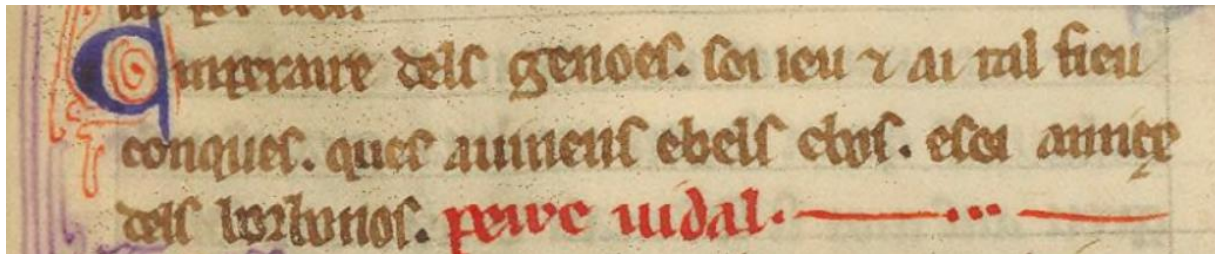 Emperaire dels genoes. soi ieu ⁊ ai tal fieu
conques. ques auinens ebels ebos. esoi amicx
dels borbonos. peire uidal.